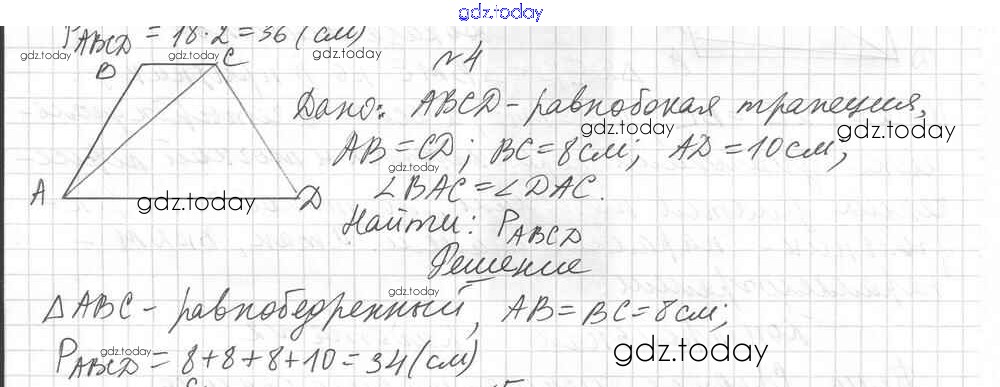 gdz.today
P ABCD = 18·2 = 36 (см)
gdz.today gdz.today gdz.today
B C
№4
Дано: ABCD - равнобокая трапеция,
gdz.today
AB = CD; BC = 8 см; AD = 10 см;
gdz.today gdz.today
∠BAC = ∠DAC.
A gdz.today D
Найти: P ABCD
gdz.today
Решение
gdz.today
△ABC - равнобедренный, AB = BC = 8 см;
P ABCD = 8+8+8+10 = 34 (см)
gdz.today gdz.today